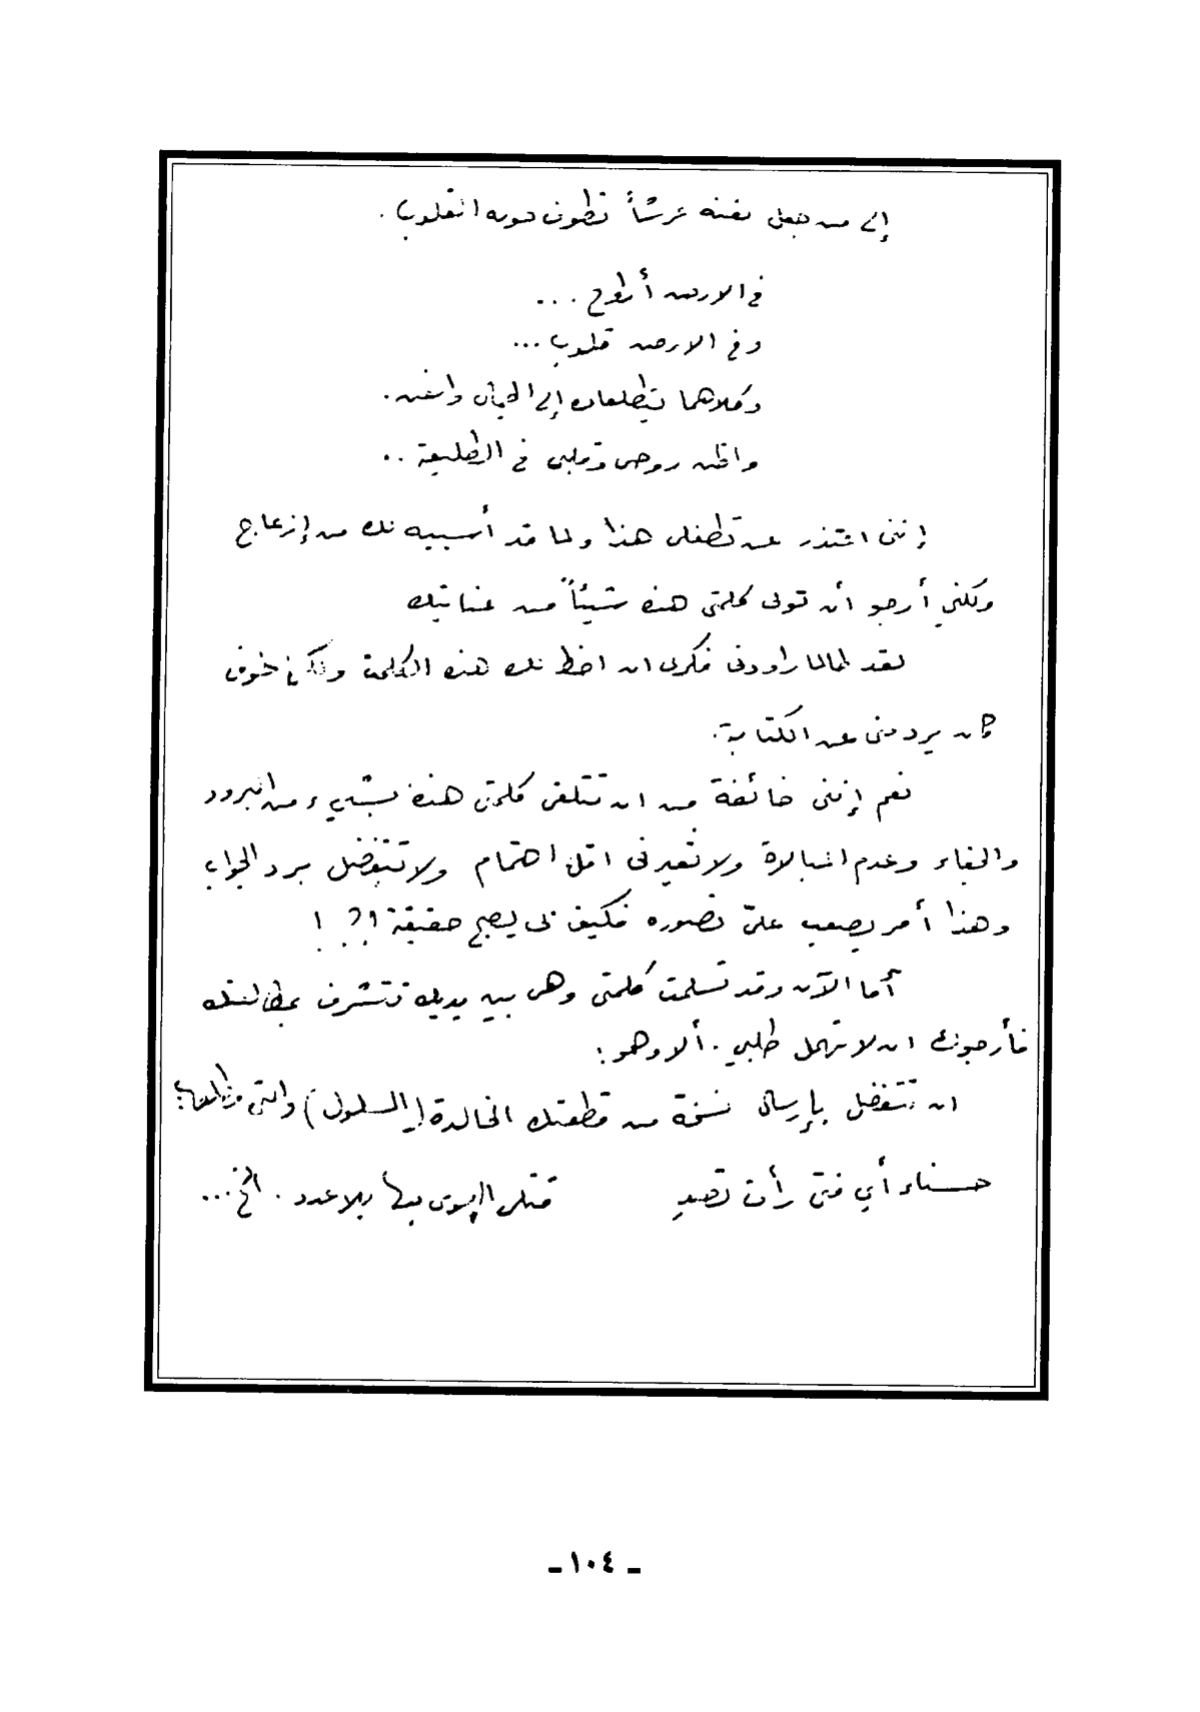 إلى من جعل بفنه عرشاً تطوف حوله القلوب .
في الارض أرواح ...
وفي الارض قلوب ...
وكلاهما يتطلعان إلى الجمال والفن .
واظن روحي وقلبي في الطليعة ..
إنني اعتذر عن تطفلي هذا ولما قد أسببه لك من إزعاج
ولكني أرجو أن تولي كلمتي هذه شيئاً من عنايتك
لقد طالما راودني فكري ان اخط لك هذه الكلمة ولكن خوفي
كان يردعني عن الكتابة .
نعم إنني خائفة من ان تتلقى كلمتي هذه بشيء من البرود
والجفاء وعدم المبالاة ولا تعيرني اقل اهتمام ولا تتفضل برد الجواب
وهذا أمر يصعب عليّ تصوره فكيف بي ليصبح حقيقة !؟ . !
أما الآن وقد تسلمت كلمتي وهي بين يديك تتشرف بمطالعتك
فأرجوك ان لا تهمل طلبي . ألا وهو :
ان تتفضل بإرسال نسخة من قطعتك الخالدة ( السلول ) والتي مطلعها :
حسناء أي فتى رأت تصدِ قتلى الهوى فيها بلا عدد . الخ ...
ـ ١٠٤ ـ